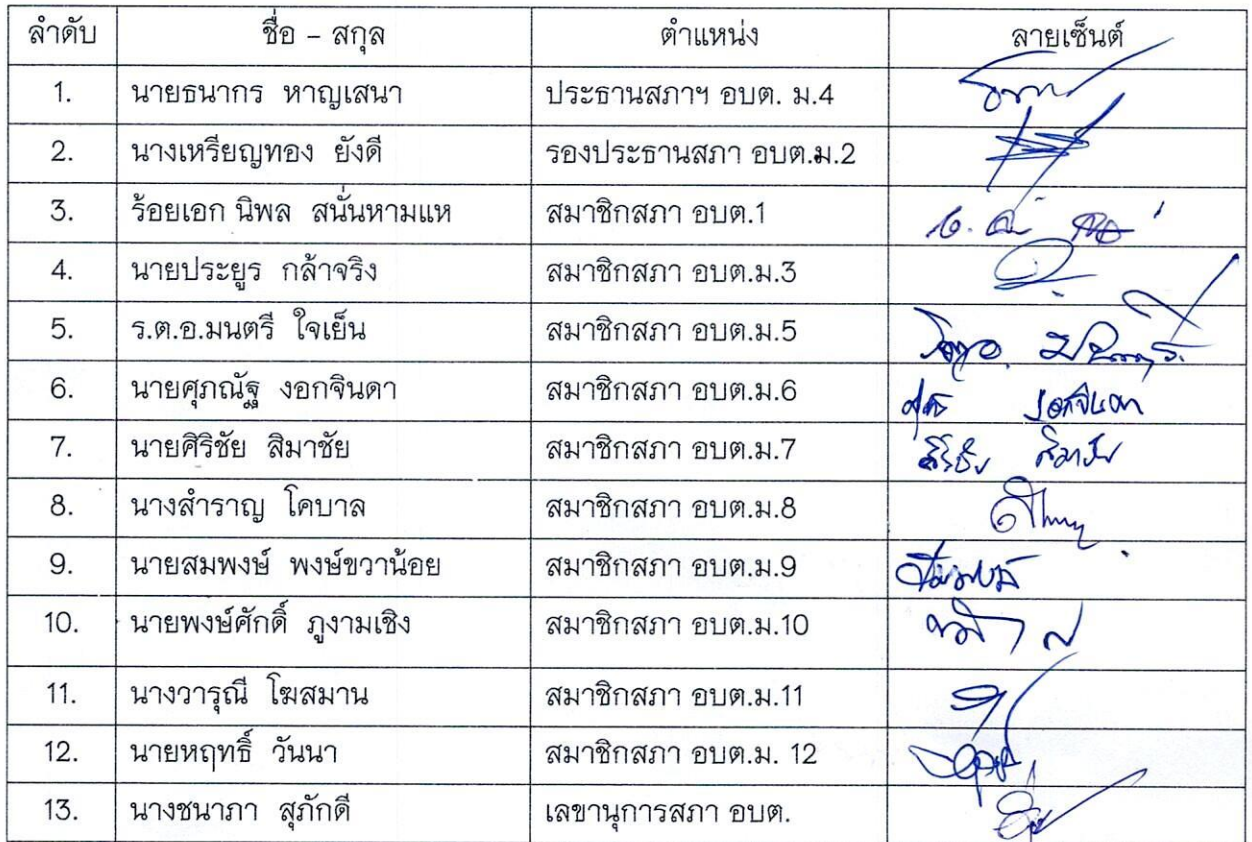 ลำดับ ชื่อ – สกุล ตำแหน่ง ลายเซ็นต์
1. นายธนากร หาญเสนา ประธานสภาฯ อบต. ม.4
2. นางเหรียญทอง ยังดี รองประธานสภา อบต.ม.2
3. ร้อยเอก นิพล สนั่นหามแห สมาชิกสภา อบต.1
4. นายประยูร กล้าจริง สมาชิกสภา อบต.ม.3
5. ร.ต.อ.มนตรี ใจเย็น สมาชิกสภา อบต.ม.5
6. นายศุภณัฐ งอกจินดา สมาชิกสภา อบต.ม.6 งอกจินดา
7. นายศิริชัย สิมาชัย สมาชิกสภา อบต.ม.7 ศิริชัย สิมาชัย
8. นางสำราญ โคบาล สมาชิกสภา อบต.ม.8
9. นายสมพงษ์ พงษ์ขวาน้อย สมาชิกสภา อบต.ม.9 สมพงษ์
10. นายพงษ์ศักดิ์ ภูงามเชิง สมาชิกสภา อบต.ม.10
11. นางวารุณี โฆสมาน สมาชิกสภา อบต.ม.11
12. นายหฤทธิ์ วันนา สมาชิกสภา อบต.ม. 12
13. นางชนาภา สุภักดี เลขานุการสภา อบต.